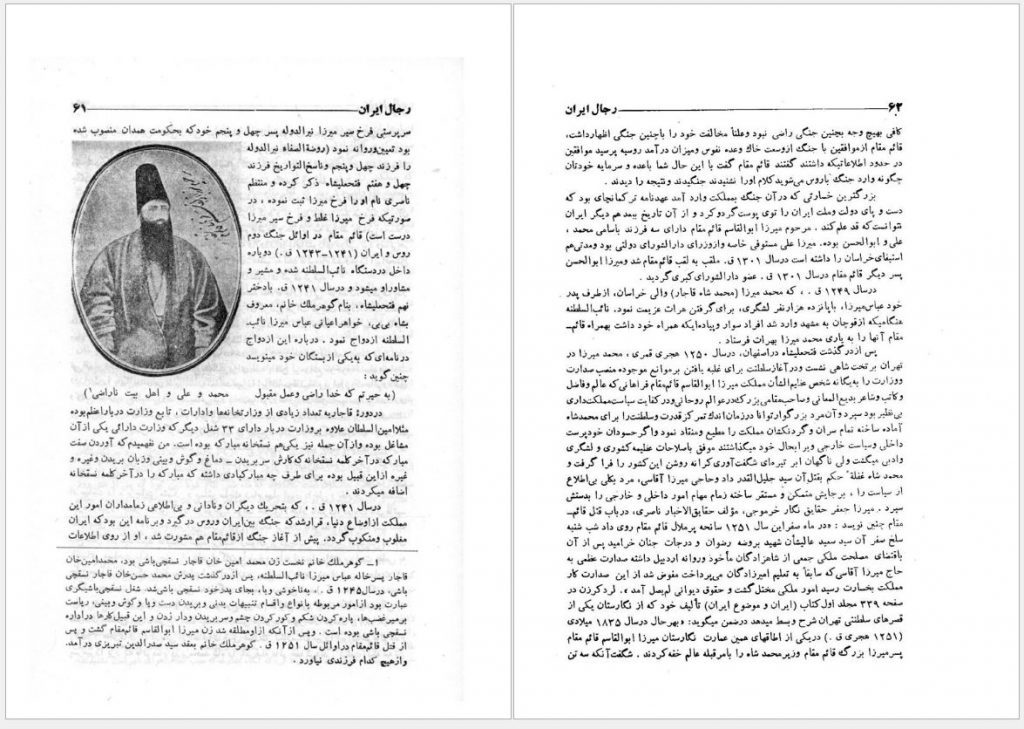 رجال ایران ۶۱
سرپرستی فرخ سیر میرزا نیرالدوله پسر چهل و پنجم خود که بحکومت همدان منصوب شده
بود تعیین و روانه نمود (روضةالصفاء نیرالدوله
را فرزند چهل و پنجم و ناسخ‌التواریخ فرزند
چهل و هفتم فتحعلیشاه ذکر کرده و منتظم
ناصری نام او را فرخ میرزا ثبت نموده ، در
صورتیکه فرخ میرزا غلط و فرخ سیر میرزا
درست است) قائم مقام در اوائل جنگ دوم
روس و ایران (۱۲۴۱-۱۲۴۳ ق .) دوباره
داخل دردستگاه نائب‌السلطنه شده و مشیر و
مشاور او میشود و در سال ۱۲۴۱ ق. بادختر
نهم فتحعلیشاه، بنام گوهر ملک خانم، معروف
بشاه بی‌بی، خواهر اعیانی عباس میرزا نائب‌ـ
السلطنه ازدواج نمود . درباره این ازدواج
در نامه‌ای که به یکی از بستگان خود مینویسد
چنین گوید :
(به حیرتم که خدا راضی وعمل مقبول محمد و علی و اهل بیت ناراضی۱)
در دورۀ قاجاریه تعداد زیادی از وزارتخانه‌ها وادارات ، تابع وزارت درباراعظم بوده
مثلا امین السلطان علاوه بر وزارت دربار دارای ۳۳ شغل دیگر که وزارت دارائی یکی از آن
مشاغل بوده و از آن جمله نیز یکی هم نسقخانه مبارکه بوده است. من نفهمیدم که آوردن صفت
مبارکه در آخر کلمه نسقخانه که کارش سر بریدن ـ دماغ و گوش و بینی وزبان بریدن وغیره و
غیره از این قبیل بوده برای طرف چه مبارکبادی داشته که مبارکه را در آخر کلمه نسقخانه
اضافه میکردند .
در سال ۱۲۴۱ ق . ، که بتحریک دیگران و نادانی و بی‌اطلاعی زمامداران امور این
مملکت از اوضاع دنیا، قرار شد که جنگ بین ایران و روس درگیرد و برنامه این بود که ایران
مغلوب ومنکوب گردد. پیش از آغاز جنگ از قائم‌مقام هم مشورت شد ، او از روی اطلاعات
۱ـ گوهر ملک خانم نخست زن محمد امین خان قاجار نسقچی‌باشی بود، محمدامین‌خان
قاجار پسرخاله عباس میرزا نائب‌السلطنه، پس ازدرگذشت پدرش محمد حسن‌خان قاجار نسقچی
باشی، درسال ۱۲۴۵ ق . ، به‌ناخوشی وبا، بجای پدر خود نسقچی باشی‌شد. شغل نسقچی‌باشیگری
عبارت بود از امور مربوطه بانواع واقسام تنبیهات بدنی و بریدن دست وپا وگوش وبینی، ریاست
برمیرغضب‌ها، پاره کردن شکم و کور کردن چشم وسر بریدن ودار زدن و این قبیل کارها در اداره
نسقچی باشی بوده است . وپس از آنکه از او مطلقه شد زن میرزا ابوالقاسم قائم‌مقام گشت و پس
از قتل قائم‌مقام دراوائل سال ۱۲۵۱ ق . گوهر ملک خانم بعقد سید صدرالدین تبریزی درآمد.
وازهیچ کدام فرزندی نیاورد .
رجال ایران ۶۲
کافی بهیچ وجه بچنین جنگی راضی نبود وعلناً مخالفت خود را باچنین جنگی اظهارداشت،
قائم مقام ازموافقین با جنگ ازوسعت خاک وعده نفوس ومیزان درآمد روسیه پرسید موافقین
در حدود اطلاعاتیکه داشتند گفتند قائم مقام گفت با این حال شما باعده و سرمایه خودتان
چگونه وارد جنگ باروس می‌شوید کلام اورا نشنیدند جنگیدند و نتیجه را دیدند .
بزرگترین خسارتی بود که در آن جنگ بمملکت وارد آمد عهدنامه ترکمانچای بود که
دست و پای دولت وملت ایران را توی پوست گردو کرد و از آن تاریخ ببعد هم دیگر ایران
نتوانست که قد علم کند. مرحوم میرزا ابوالقاسم قائم مقام دارای سه فرزند باسامی محمد ،
علی و ابوالحسن بوده. میرزا علی مستوفی خاصه وازوزرای دارالشورای دولتی بود ومدتی هم
استیفای خراسان را داشته است درسال ۱۳۰۱ ق. ملقب به لقب قائم مقام شد ومیرزا ابوالحسن
پسر دیگر قائم مقام درسال ۱۳۰۱ ق. عضو دارالشورای کبری گردید .
درسال ۱۲۴۹ ق . ، که محمد میرزا (محمد شاه قاجار) والی خراسان، ازطرف پدر
خود عباس‌میرزا، باپانزده هزارنفر لشگری، برای گرفتن هرات عزیمت نمود، نائب‌السلطنه
هنگامیکه ازقوچان به مشهد وارد شد افراد سوار وپیاده‌ایکه همراه خود داشت بهمراه قائم‌ـ
مقام آنها را به یاری محمد میرزا بهرات فرستاد .
پس از درگذشت فتحعلیشاه دراصفهان، درسال ۱۲۵۰ هجری قمری ، محمد میرزا در
تهران بر تخت شاهی نشست ودر آغاز سلطنت برای غلبه یافتن بر موانع موجوده منصب صدارت
ووزارت را به یگانه شخص عظیم‌الشأن مملکت میرزا ابوالقاسم قائم‌مقام فراهانی که عالم وفاضل
وکاتب وشاعر بدیع‌المعانی وصاحب‌مقامی بزرگ درعوالم روحانی ودر کفایت سیاست مملکت‌داری
بی‌نظیر بود سپرد و آن مرد بزرگوار توانا درزمان اندک تمرکز قدرت وسلطنت را برای محمدشاه
آماده ساخته تمام سران و گردنکشان مملکت را مطیع ومنقاد نمود واگر حسودان خود پرست
داخلی وسیاست خارجی ویرا بحال خود میگذاشتند موفق باصلاحات عظیمه کشوری و لشگری
وادبی میگشت ولی ناگهان ابر تیره‌ای شگفت‌آوری کرانه روشن این کشور را فرا گرفت و
محمد شاه غفلةً حکم بقتل آن سید جلیل‌القدر داد وحاجی میرزا آقاسی، مرد بکلی بی‌اطلاع
از سیاست را ، برجایش متمکن و مستقر ساخته زمام مهام امور داخلی و خارجی را بدستش
سپرد . میرزا جعفر حقایق نگار خرموجی، مؤلف حقایق‌الاخبار ناصری، درباب قتل قائم‌ـ
مقام چنین نویسد : «در ماه صفر این سال ۱۲۵۱ سانحه پرملال قائم مقام روی داد شب شنبه
سلخ صفر آن سید سعید عالیشأن شهید بروضه رضوان و درجات جنان خرامید پس از آن
باقتضای مصلحت ملکی جمعی از شاهزادگان مأخوذ وروانه اردبیل داشته صدارت عظمی به
حاج میرزا آقاسی که سابقاً به تعلیم امیرزادگان می‌پرداخت مفوض شد از این صدارت کار
مملکت بخسارت رسید امور ملکی مختل گشت و حقوق دیوانی لم‌یصل آمد». لرد کرزن در
صفحه ۳۳۹ مجلد اول کتاب (ایران و موضوع ایران) تألیف خود که از نگارستان یکی از
قصرهای سلطنتی تهران شرح وبسط میدهد درضمن میگوید: «بهر حال درسال ۱۸۳۵ میلادی
(۱۲۵۱ هجری ق .) دریکی از اطاقهای همین عمارت نگارستان میرزا ابوالقاسم قائم مقام
پسرمیرزا بزرگ قائم مقام وزیرمحمد شاه را بامر قبله عالم خفه کردند . شگفت آنکه سه تن